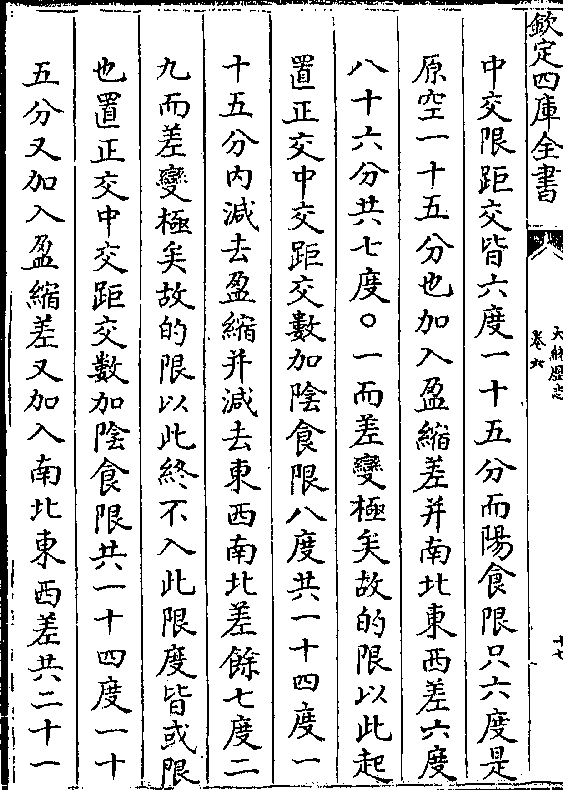 欽定四庫全書
大統歷志
卷六
十七
中交限距交皆六度一十五分而陽食限只六度是
原空一十五分也加入盈縮差并南北東西差六度
八十六分共七度〇一而差變極矣故的限以此起
置正交中交距交數加陰食限八度共一十四度一
十五分內減去盈縮并減去東西南北差餘七度二
九而差變極矣故的限以此終不入此限度皆或限
也置正交中交距交數加陰食限共一十四度一十
五分又加入盈縮差又加入南北東西差共二十一